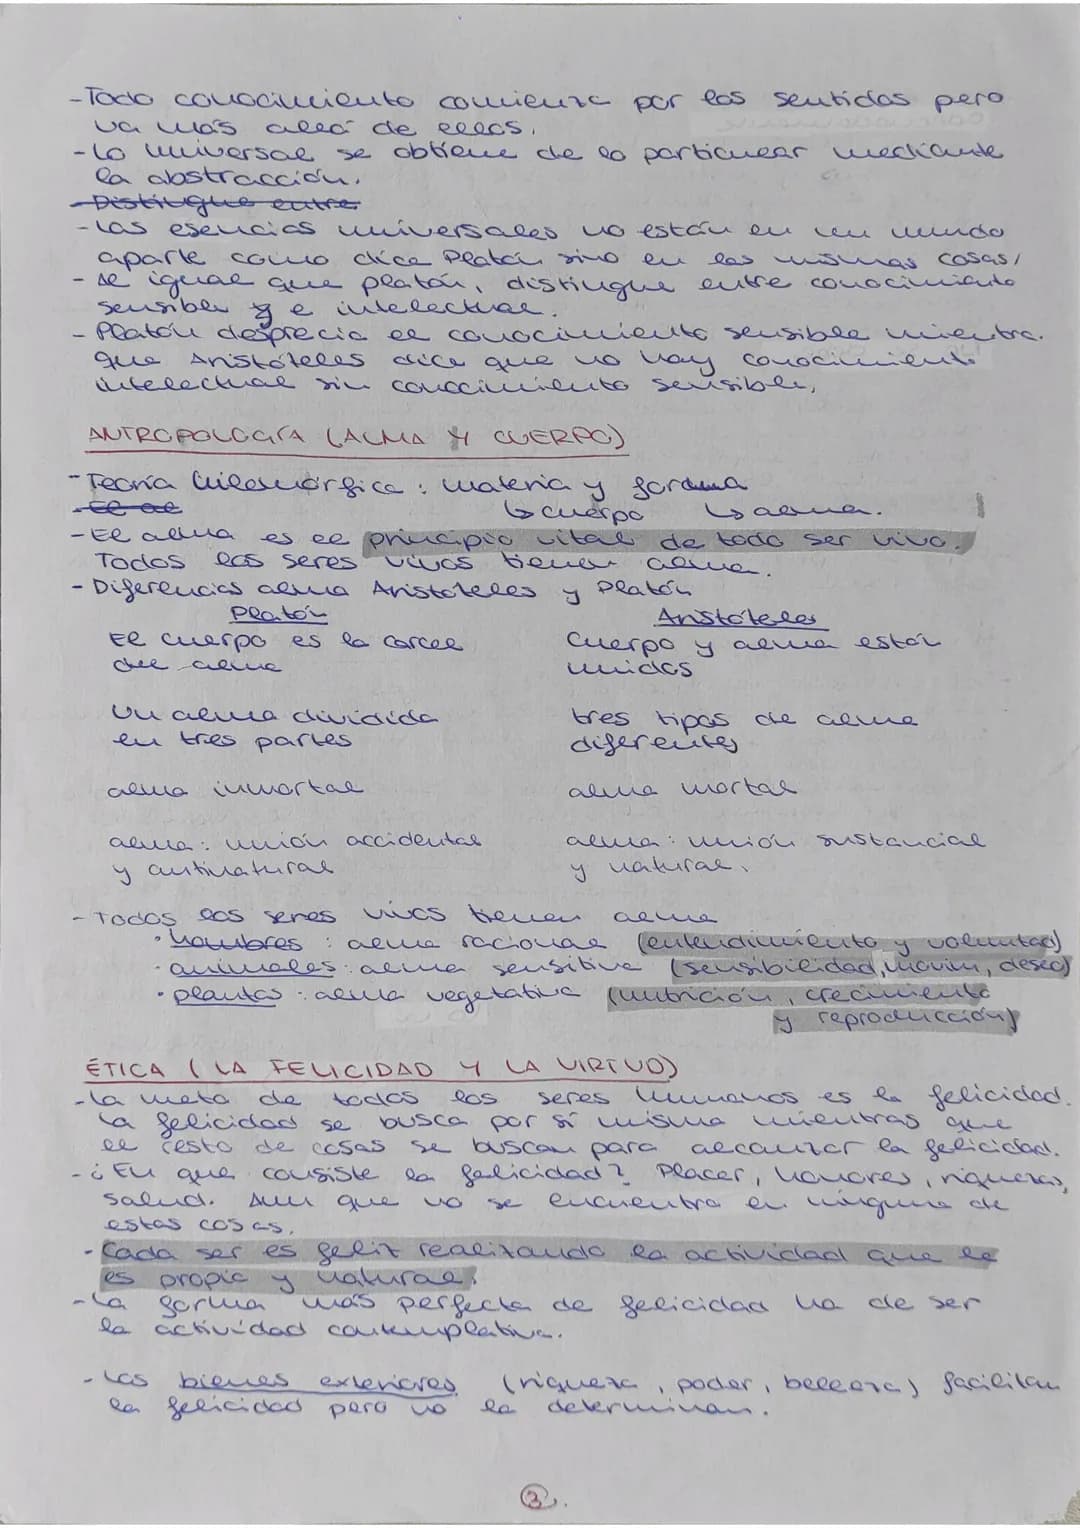 - Todo conocimiento comienza por los sentidos pero
va más allá de ellos.
- Lo universal se obtiene de lo particular mediante
la abstracción.
- Distingue entre
- Las esencias universales no están en un mundo
aparte como dice Platón sino en las mismas cosas.
- Al igual que platón, distingue entre conocimiento
sensible y e intelectual.
- Platón desprecia el conocimiento sensible mientra.
que Aristóteles dice que no hay conocimiento
intelectual sin conocimiento sensible.
ANTROPOLOGÍA (ALMA Y CUERPO)
- Teoría hilemórfica: materia y forma
↳ cuerpo ↳ alma.
- El al
- El alma es el principio vital de todo ser vivo.
Todos los seres vivos tienen alma.
- Diferencias alma Aristóteles y Platón
Platón Aristóteles
El cuerpo es la carcel Cuerpo y alma están
del alma unidos
Un alma dividida tres tipos de alma
en tres partes diferentes
alma inmortal alma mortal
alma: unión accidental alma: unión sustancial
y antinatural y natural.
- Todos los seres vivos tienen alma
· hombres: alma racional (entendimiento y voluntad)
· animales: alma sensitiva (sensibilidad, movim, deseo)
· plantas: alma vegetativa (nutrición, crecimiento
y reproducción)
ÉTICA (LA FELICIDAD Y LA VIRTUD)
- La meta de todos los seres humanos es la felicidad.
La felicidad se busca por sí misma mientras que
el resto de cosas se buscan para alcanzar la felicidad.
- ¿En que consiste la felicidad? Placer, honores, riquezas,
salud. Aun que no se encuentra en ninguna de
estas cosas.
- Cada ser es feliz realizando la actividad que le
es propia y natural.
- La forma más perfecta de felicidad ha de ser
la actividad contemplativa.
- Los bienes exteriores (riqueza, poder, belleza) facilitan
la felicidad pero no la determinan.
3.